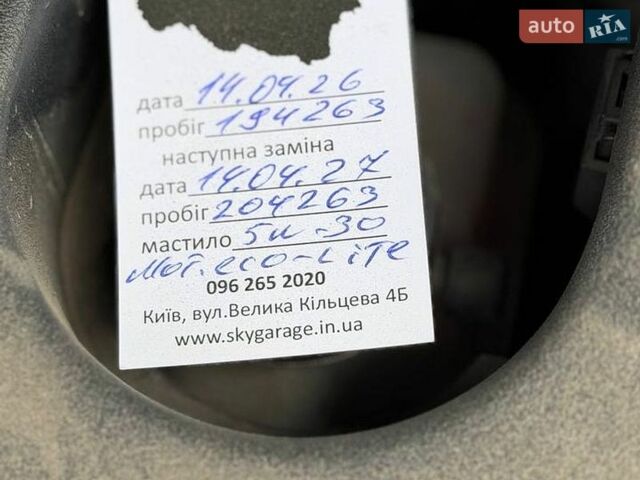 auto RIA.com
дата 14.04.26
пробіг 194263
наступна заміна
дата 14.04.27
пробіг 204263
мастило 5w-30
Mot.eco-Lite
096 265 2020
Київ, вул.Велика Кільцева 4Б
www.skygarage.in.ua